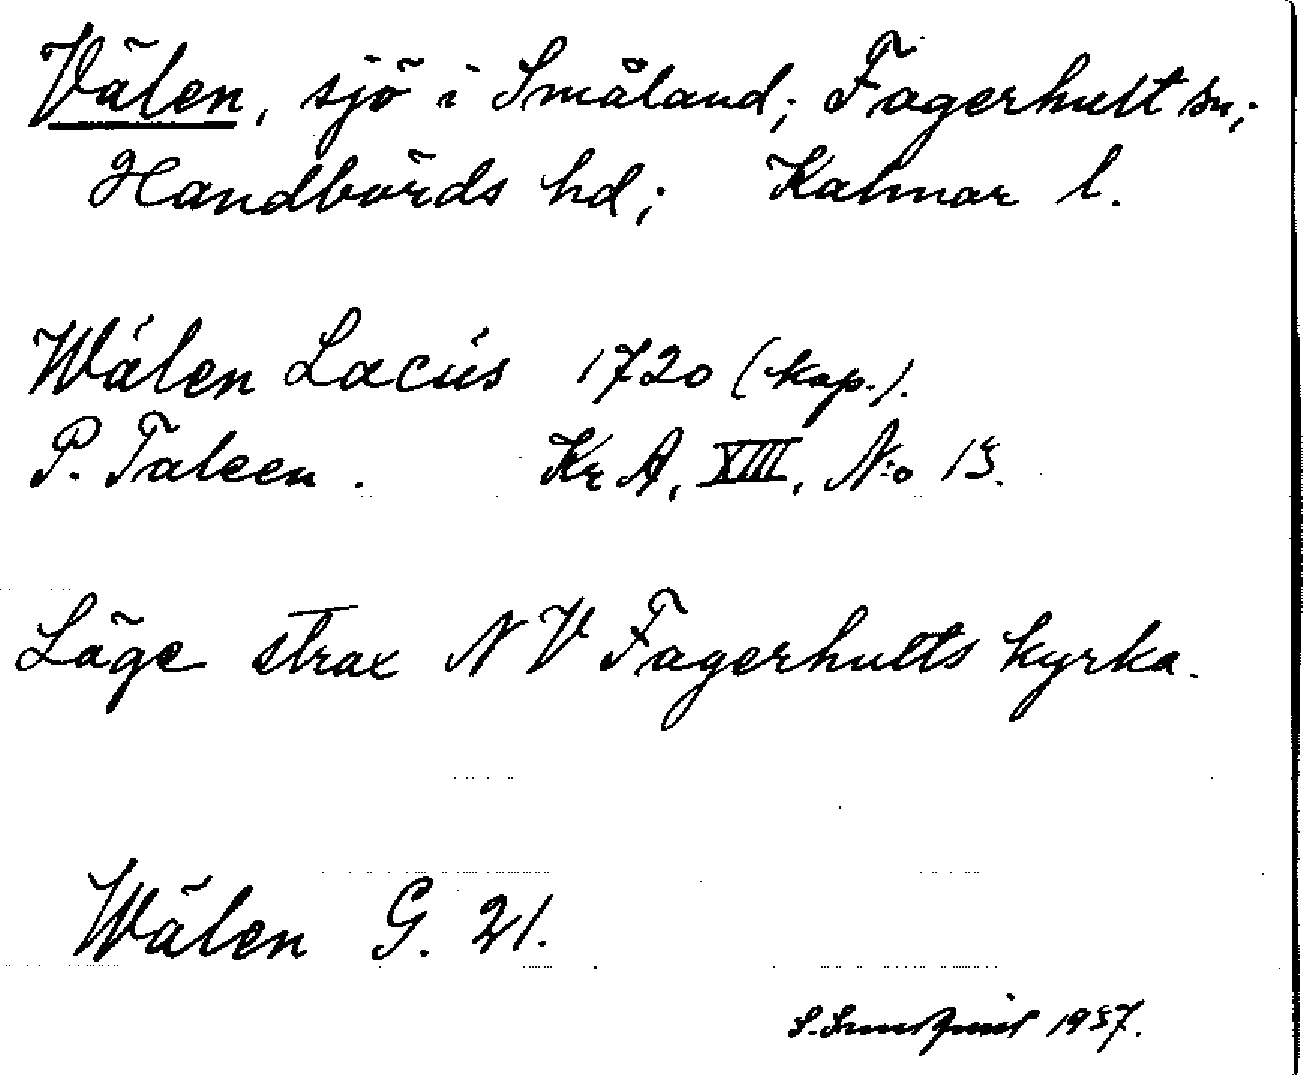 Välen, sjö i Småland; Fagerhult sn;
Handbörds hd; Kalmar l.
Wälen Lacus 1720 (kop.).
P. Taleen. Kr A, XVIII, N:o 13.
Läge strax NV Fagerhults kyrka.
Wälen G. 21.
1937.